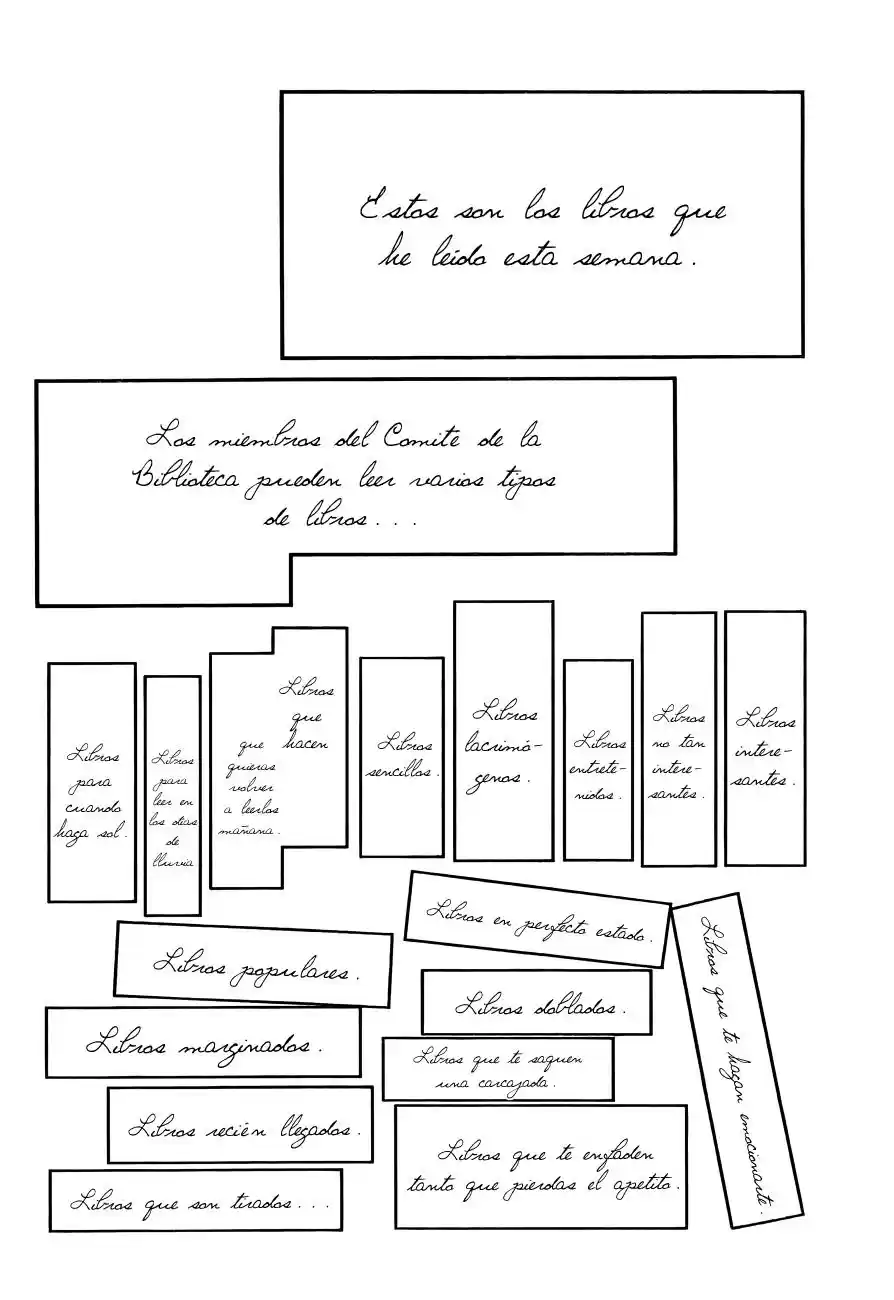 Estos son los libros que
he leído esta semana.
Los miembros del Comite de la
Biblioteca pueden leer varios tipos
de libros...
Libros
para
cuando
haga sol.
Libros
para
leer en
los días
de
lluvia
Libros
que
hacen
que
quieras
volver
a leerlos
mañana.
Libros
sencillos.
Libros
lacrimó-
genos.
Libros
entrete-
nidos.
Libros
no tan
intere-
santes.
Libros
intere-
santes.
Libros populares.
Libros marginados.
Libros recién llegados.
Libros que son tirados...
Libros en perfecto estado.
Libros doblados.
Libros que te saquen
una carcajada.
Libros que te enfaden
tanto que pierdas el apetito.
Libros que te hagan emocionarte.